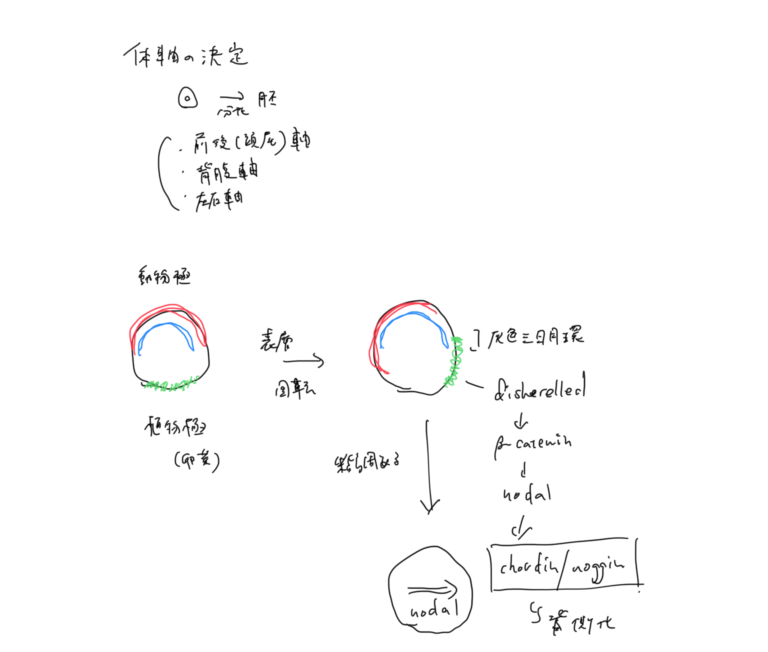 体軸の決定
分化 胚
・前後(頭尾)軸
・背腹軸
・左右軸
動物極
植物極
(卵黄)
表層
回転
灰色三日月環
disherelled
β-catenin
nodal
chordin/noggin
背側化
nodal